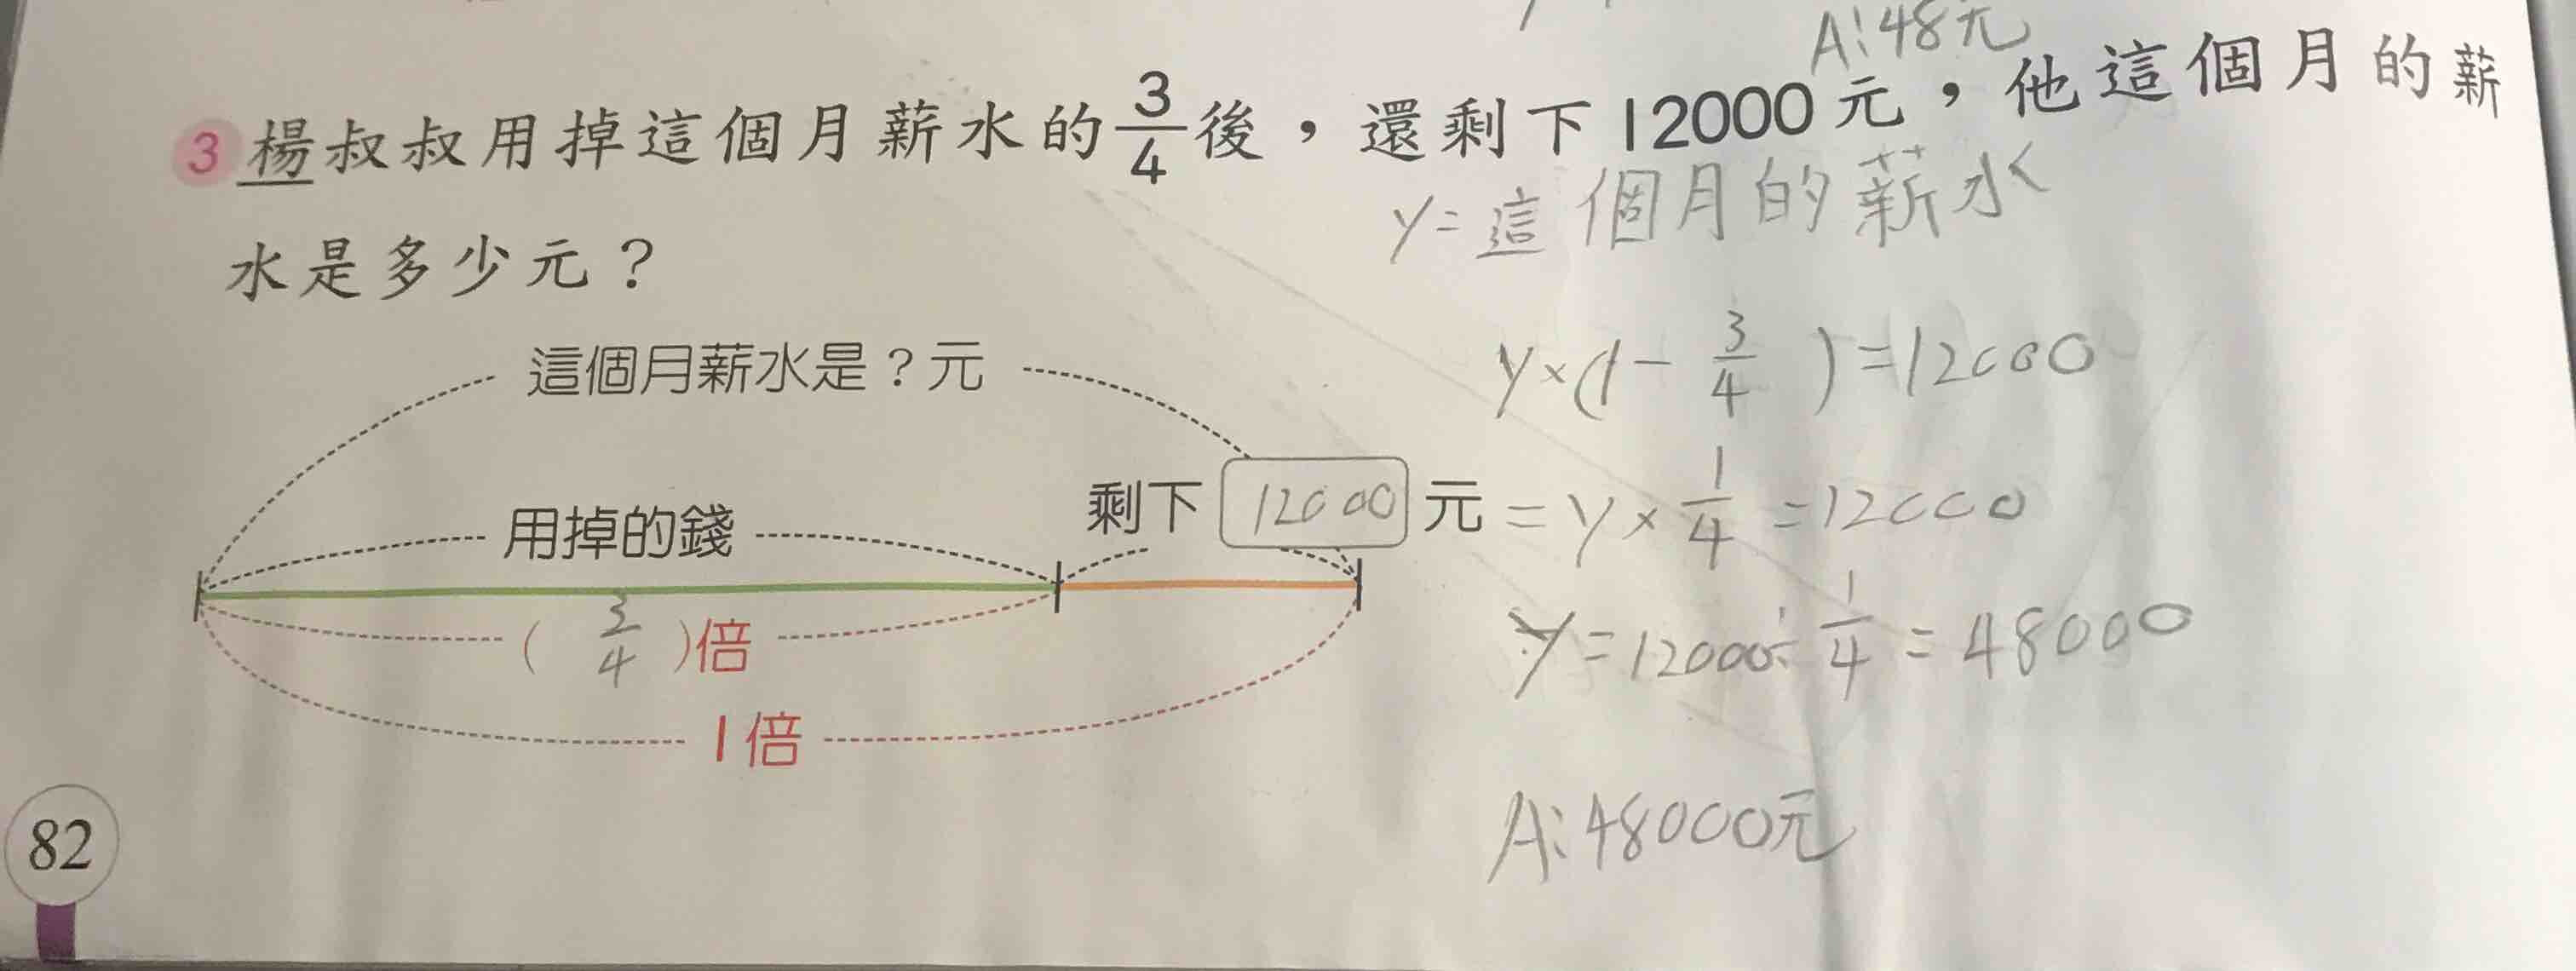 A:48元
3 楊叔叔用掉這個月薪水的3/4後，還剩下12000元，他這個月的薪
水是多少元？
y=這個月的薪水
這個月薪水是？元
y×(1-3/4)=12000
用掉的錢
剩下 12000 元
=y×1/4=12000
(3/4)倍
y=12000÷1/4=48000
1倍
A:48000元
82